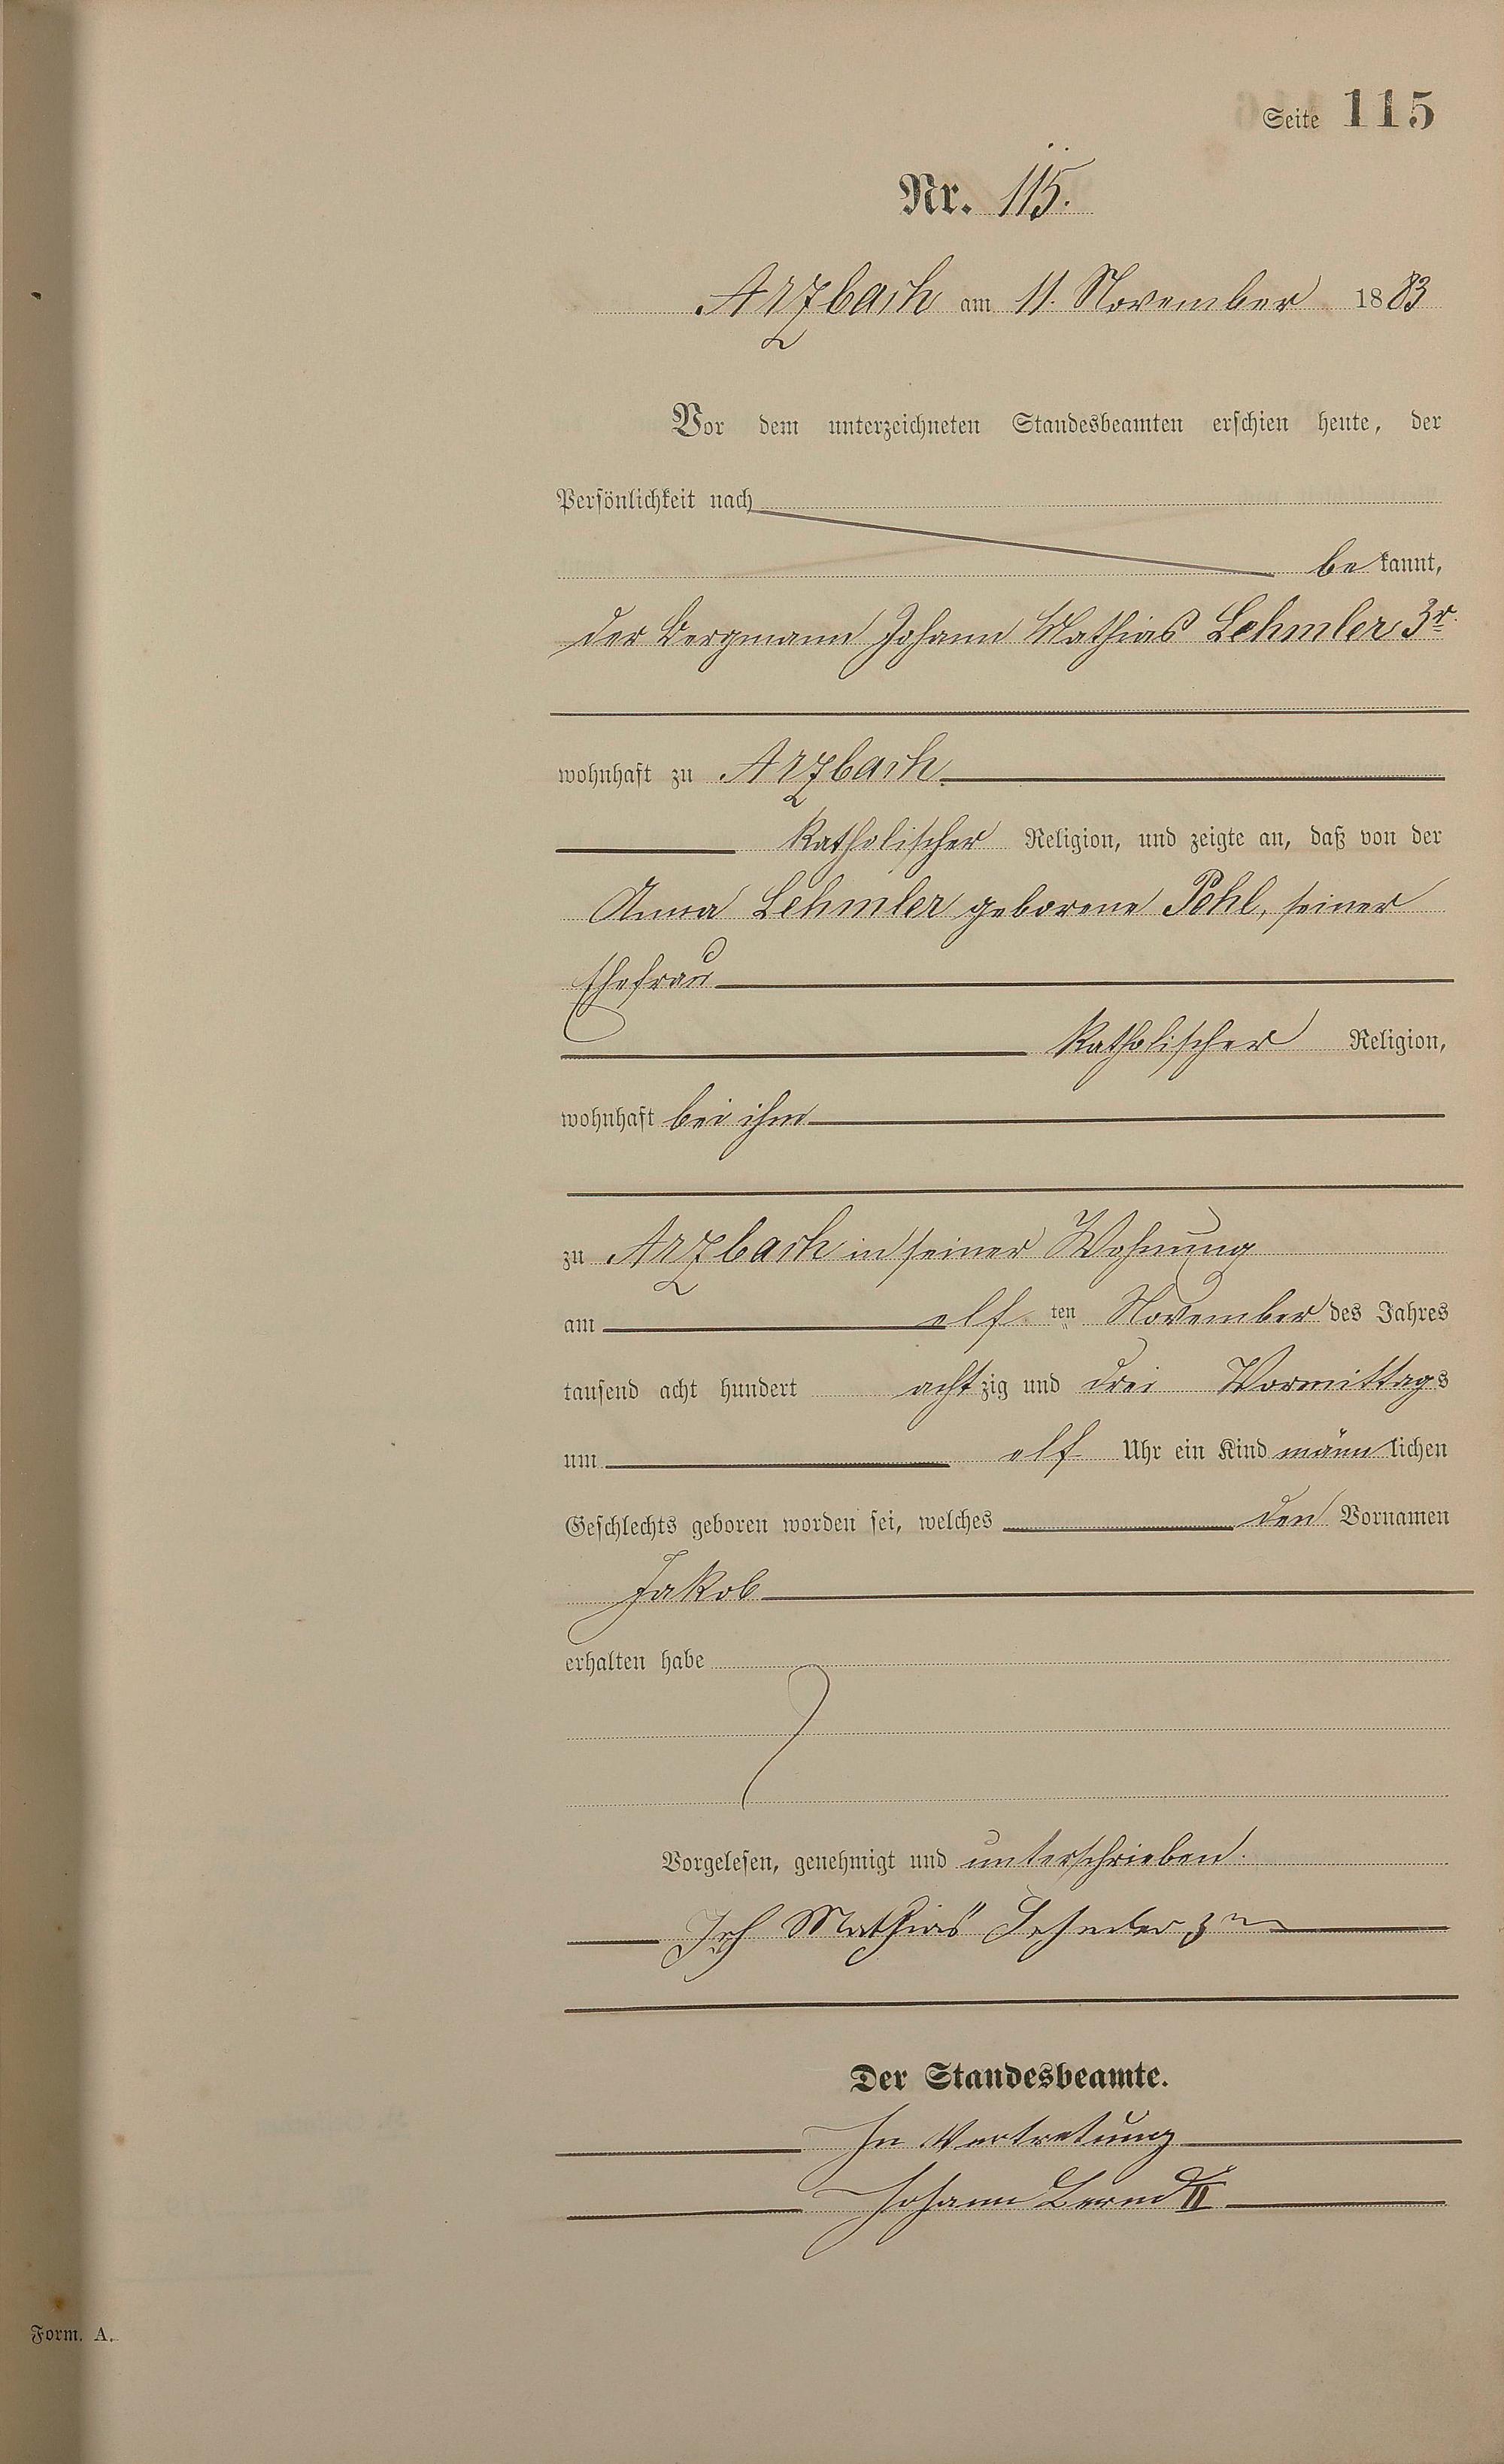 Seite 115
Nr. 115.
Arzbach am 11. November 1883
Vor dem unterzeichneten Standesbeamten erschien heute, der
Persönlichkeit nach
bekannt,
der Bergmann Johann Mathias Lehmler 3r.
wohnhaft zu Arzbach
katholischer Religion, und zeigte an, daß von der
Anna Lehmler geborene Pehl, seiner
Ehefrau
katholischer Religion,
wohnhaft bei ihm
zu Arzbach in seiner Wohnung
am elf ten November des Jahres
tausend acht hundert achtzig und drei Vormittags
um elf Uhr ein Kind männlichen
Geschlechts geboren worden sei, welches den Vornamen
Jakob
erhalten habe
Vorgelesen, genehmigt und unterschrieben.
Joh Mathias Lehmler 3r
Der Standesbeamte.
In Vertretung
Johann Bernd II
Form. A.